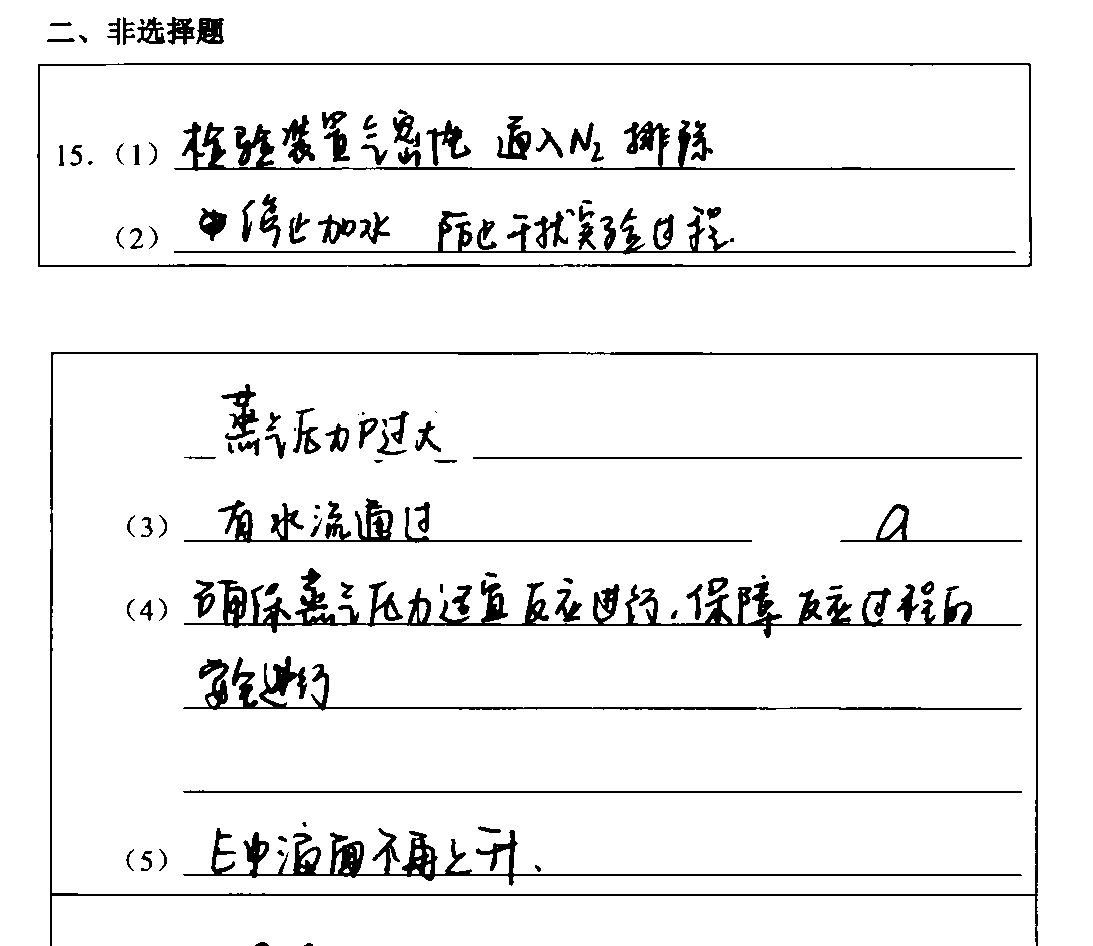 二、非选择题
15.（1）检验装置气密性 通入N₂ 排除
（2）停止加水 防止干扰实验过程.
蒸气压力P过大
（3）有水流通过 a
（4）确保蒸气压力适宜反应进行，保障反应过程的
安全进行
（5）E中液面不再上升.